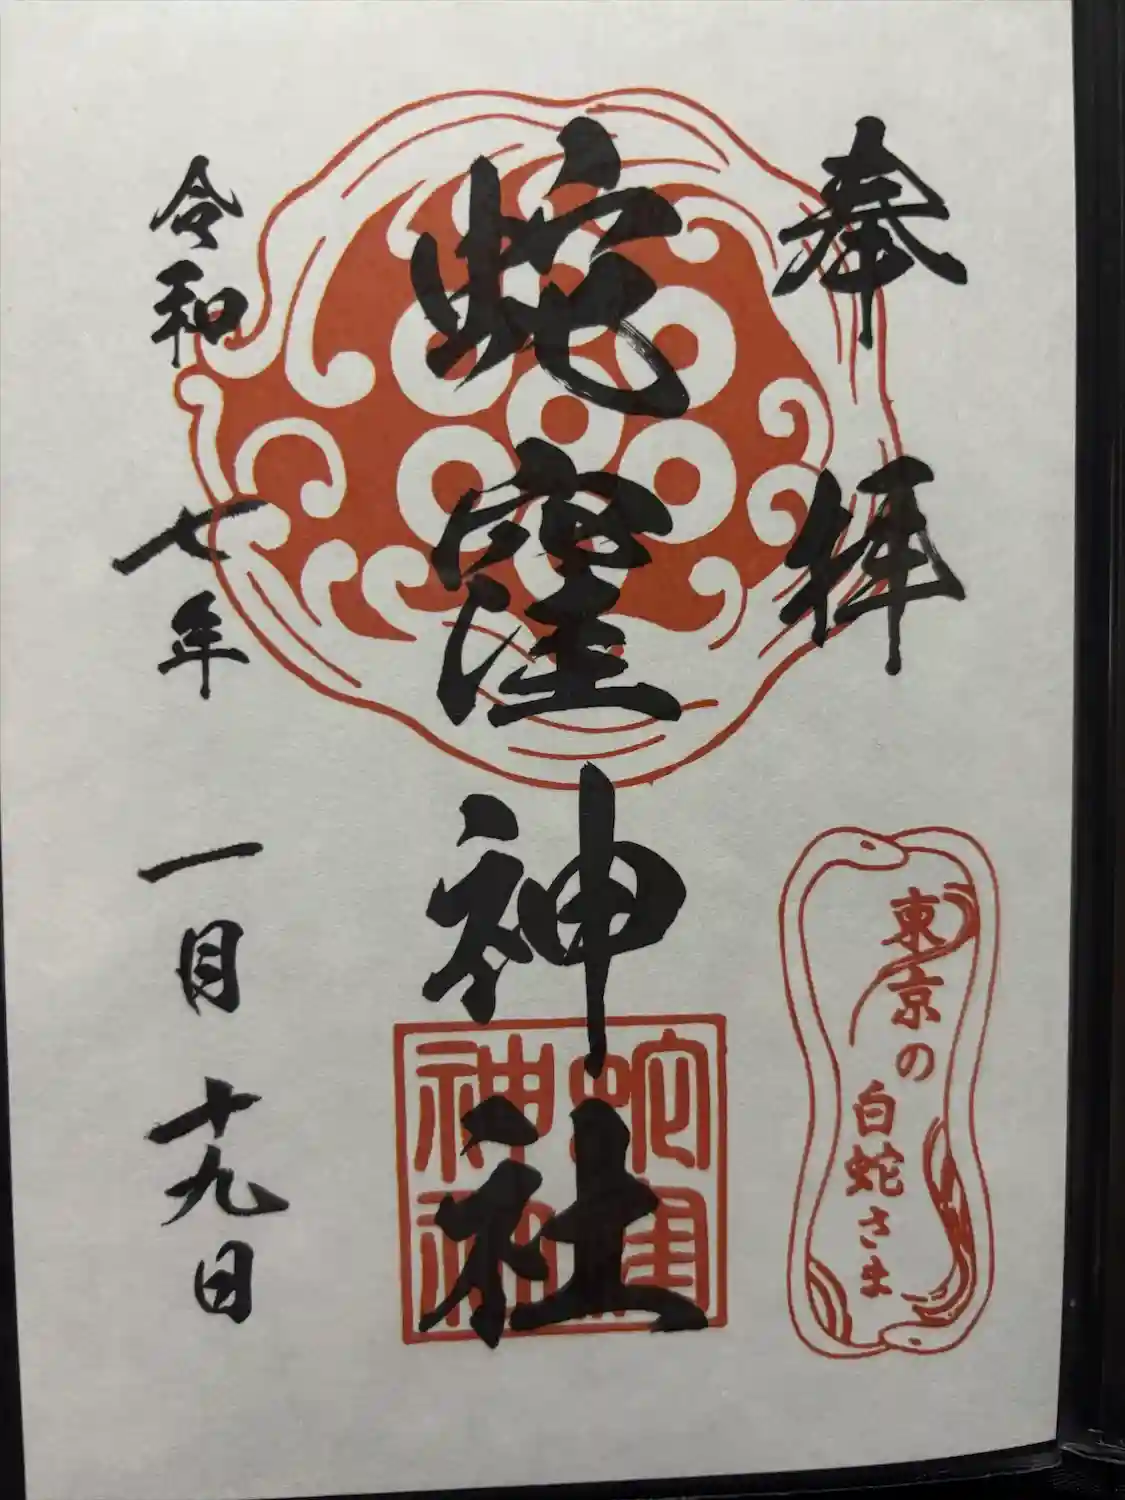 奉拝
東京の
白蛇さま
蛇窪神社
蛇窪
神社
令和七年一月十九日